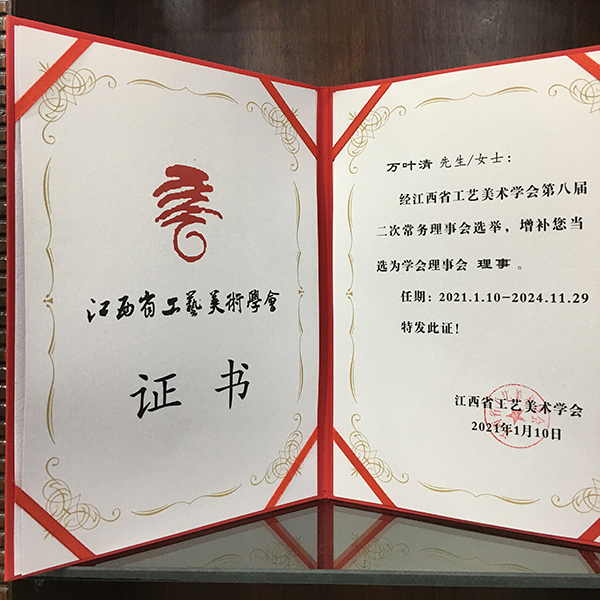 江西省工藝美術學會
证书
万叶清 先生/女士：
经江西省工艺美术学会第八届
二次常务理事会选举，增补您当
选为学会理事会 理事 。
任期：2021.1.10-2024.11.29
特发此证！
江西省工艺美术学会
2021年1月10日